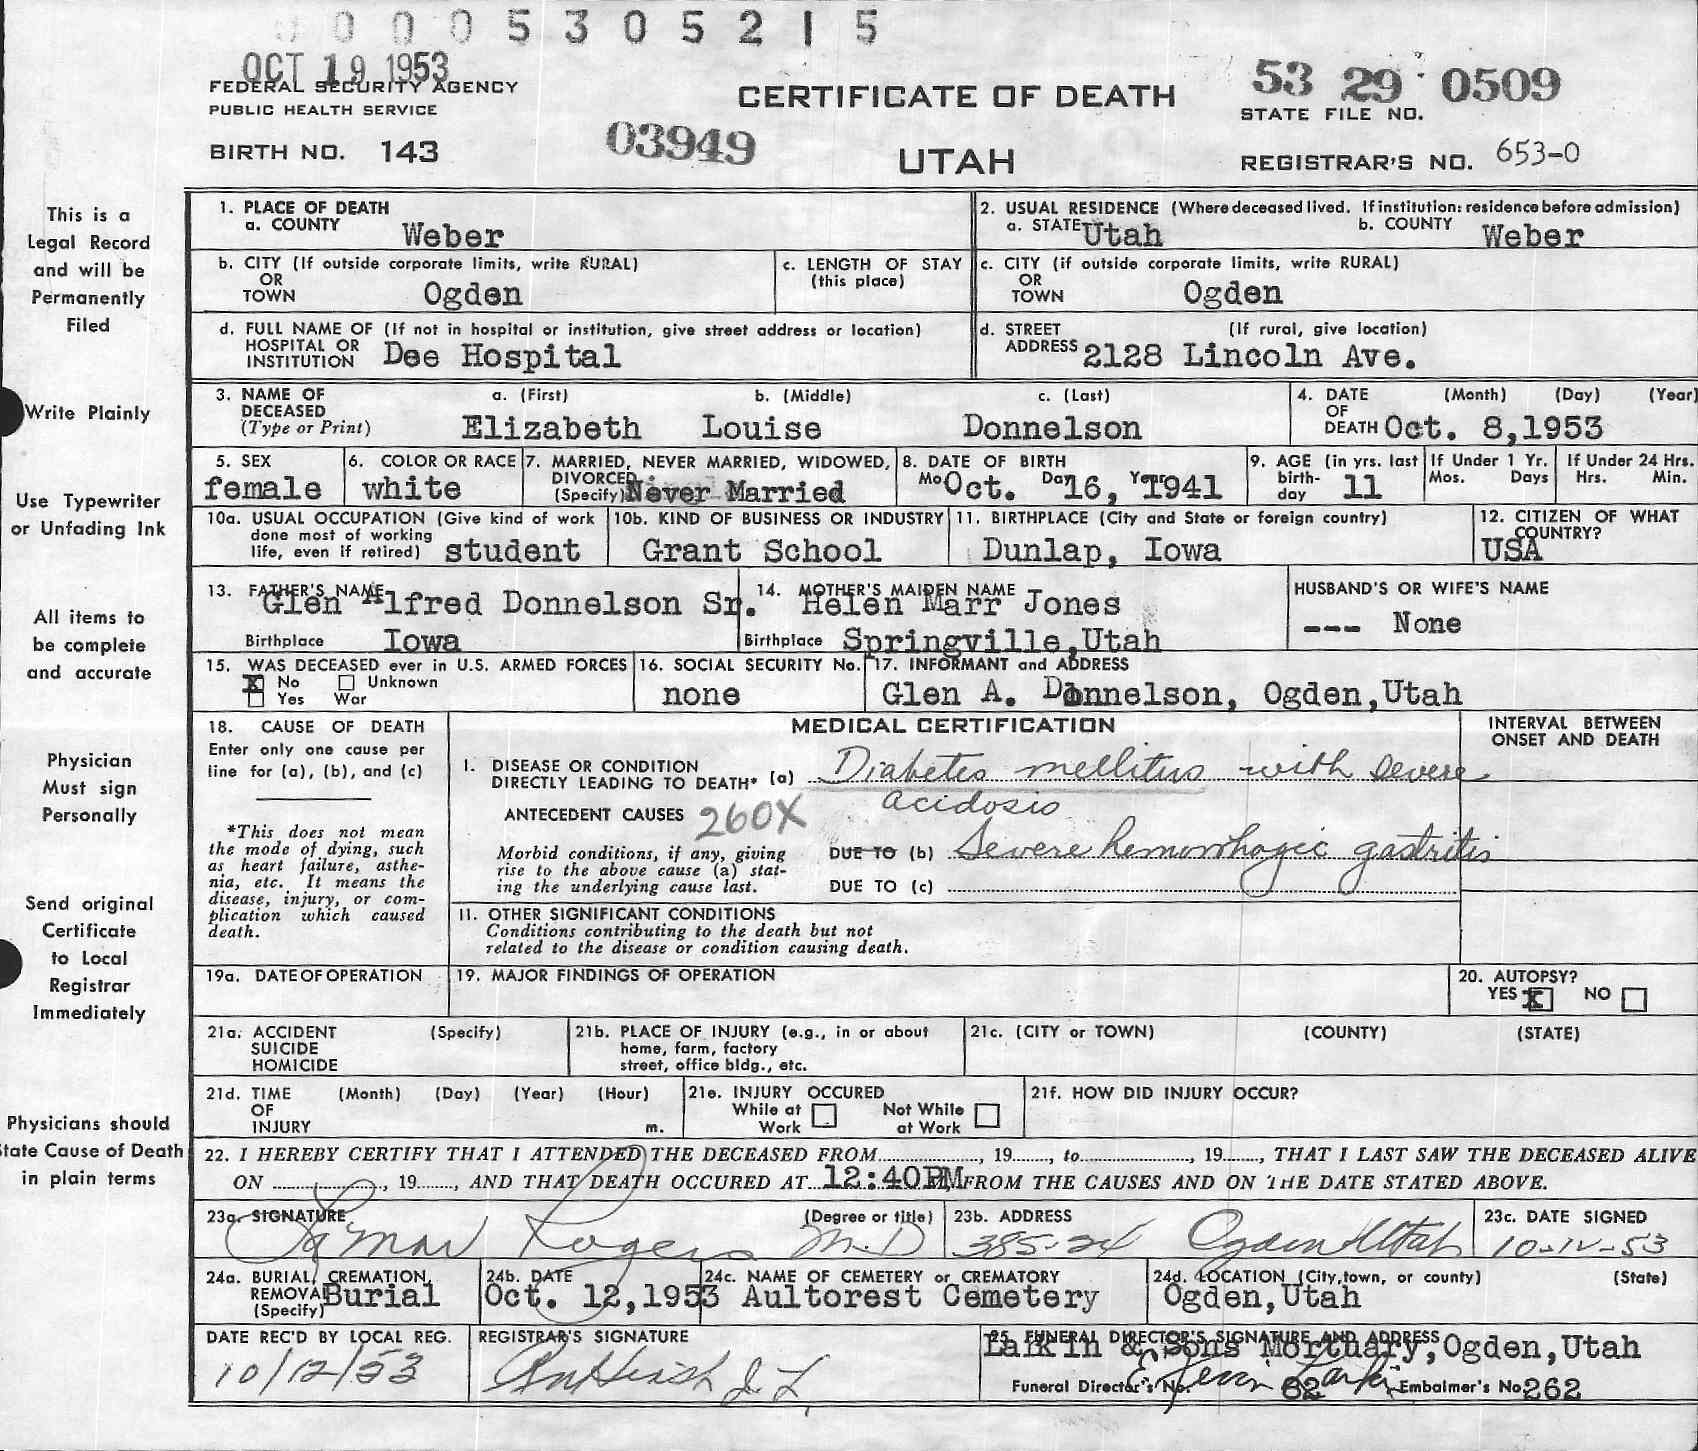 0 0 0 5 3 0 5 2 1 5
OCT 19 1953
FEDERAL SECURITY AGENCY
PUBLIC HEALTH SERVICE
BIRTH NO. 143
03949
CERTIFICATE OF DEATH
UTAH
53 29 0509
STATE FILE NO.
REGISTRAR'S NO. 653-0
This is a
Legal Record
and will be
Permanently
Filed
Write Plainly
Use Typewriter
or Unfading Ink
All items to
be complete
and accurate
Physician
Must sign
Personally
Send original
Certificate
to Local
Registrar
Immediately
Physicians should
State Cause of Death
in plain terms
1. PLACE OF DEATH
a. COUNTY Weber
2. USUAL RESIDENCE (Where deceased lived. If institution: residence before admission)
a. STATE Utah b. COUNTY Weber
b. CITY (If outside corporate limits, write RURAL)
OR
TOWN Ogden
c. LENGTH OF STAY
(this place)
c. CITY (if outside corporate limits, write RURAL)
OR
TOWN Ogden
d. FULL NAME OF (If not in hospital or institution, give street address or location)
HOSPITAL OR
INSTITUTION Dee Hospital
d. STREET (If rural, give location)
ADDRESS 2128 Lincoln Ave.
3. NAME OF
DECEASED
(Type or Print)
a. (First) b. (Middle) c. (Last)
Elizabeth Louise Donnelson
4. DATE (Month) (Day) (Year)
OF
DEATH Oct. 8,1953
5. SEX
female
6. COLOR OR RACE
white
7. MARRIED, NEVER MARRIED, WIDOWED,
DIVORCED
(Specify) Never Married
8. DATE OF BIRTH
Mo Oct. Da 16, Yr 1941
9. AGE (in yrs. last
birth-
day 11
If Under 1 Yr.
Mos. Days
If Under 24 Hrs.
Hrs. Min.
10a. USUAL OCCUPATION (Give kind of work
done most of working
life, even if retired) student
10b. KIND OF BUSINESS OR INDUSTRY
Grant School
11. BIRTHPLACE (City and State or foreign country)
Dunlap, Iowa
12. CITIZEN OF WHAT
COUNTRY?
USA
13. FATHER'S NAME
Glen Alfred Donnelson Sr.
Birthplace Iowa
14. MOTHER'S MAIDEN NAME
Helen Marr Jones
Birthplace Springville,Utah
HUSBAND'S OR WIFE'S NAME
--- None
15. WAS DECEASED ever in U.S. ARMED FORCES
X No Unknown
Yes War
16. SOCIAL SECURITY No.
none
17. INFORMANT and ADDRESS
Glen A. Donnelson, Ogden,Utah
18. CAUSE OF DEATH
Enter only one cause per
line for (a), (b), and (c)
*This does not mean
the mode of dying, such
as heart failure, asthe-
nia, etc. It means the
disease, injury, or com-
plication which caused
death.
MEDICAL CERTIFICATION
INTERVAL BETWEEN
ONSET AND DEATH
I. DISEASE OR CONDITION
DIRECTLY LEADING TO DEATH* (a) Diabetes mellitus with severe
acidosis
ANTECEDENT CAUSES 260X
Morbid conditions, if any, giving
rise to the above cause (a) stat-
ing the underlying cause last.
DUE TO (b) Severe hemorrhagic gastritis
DUE TO (c)
II. OTHER SIGNIFICANT CONDITIONS
Conditions contributing to the death but not
related to the disease or condition causing death.
19a. DATE OF OPERATION
19. MAJOR FINDINGS OF OPERATION
20. AUTOPSY?
YES X NO
21a. ACCIDENT (Specify)
SUICIDE
HOMICIDE
21b. PLACE OF INJURY (e.g., in or about
home, farm, factory
street, office bldg., etc.
21c. (CITY or TOWN) (COUNTY) (STATE)
21d. TIME (Month) (Day) (Year) (Hour)
OF
INJURY m.
21e. INJURY OCCURED
While at Not While
Work at Work
21f. HOW DID INJURY OCCUR?
22. I HEREBY CERTIFY THAT I ATTENDED THE DECEASED FROM........, 19......, to........, 19......, THAT I LAST SAW THE DECEASED ALIVE
ON ........, 19......, AND THAT DEATH OCCURED AT 12:40PM FROM THE CAUSES AND ON THE DATE STATED ABOVE.
23a. SIGNATURE (Degree or title)
Lamar Rogers M.D
23b. ADDRESS
385-24 Ogden Utah
23c. DATE SIGNED
10-12-53
24a. BURIAL, CREMATION,
REMOVAL
(Specify) Burial
24b. DATE
Oct. 12,1953
24c. NAME OF CEMETERY or CREMATORY
Aultorest Cemetery
24d. LOCATION (City,town, or county) (State)
Ogden,Utah
DATE REC'D BY LOCAL REG.
10/12/53
REGISTRAR'S SIGNATURE
25. FUNERAL DIRECTOR'S SIGNATURE AND ADDRESS
Larkin & Sons Mortuary,Ogden,Utah
Funeral Director's No. 62 Embalmer's No. 262